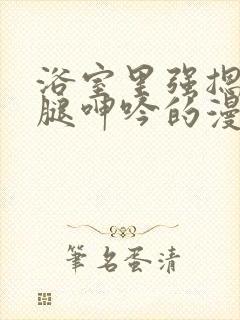 浴室里强摁
腿呻吟的漫
筆名蛋清